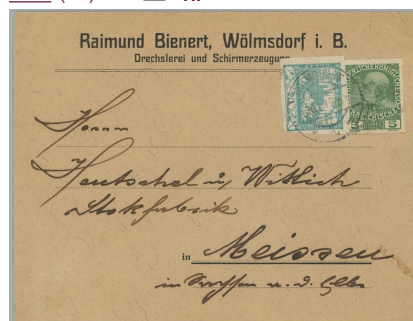 Raimund Bienert, Wölmsdorf i. B.
Drechslerei und Schirmerzeugung
Herrn
Hentschel u. Wittich
Stokfabrik
in Meissen
in Sachsen a. d. Elbe
5